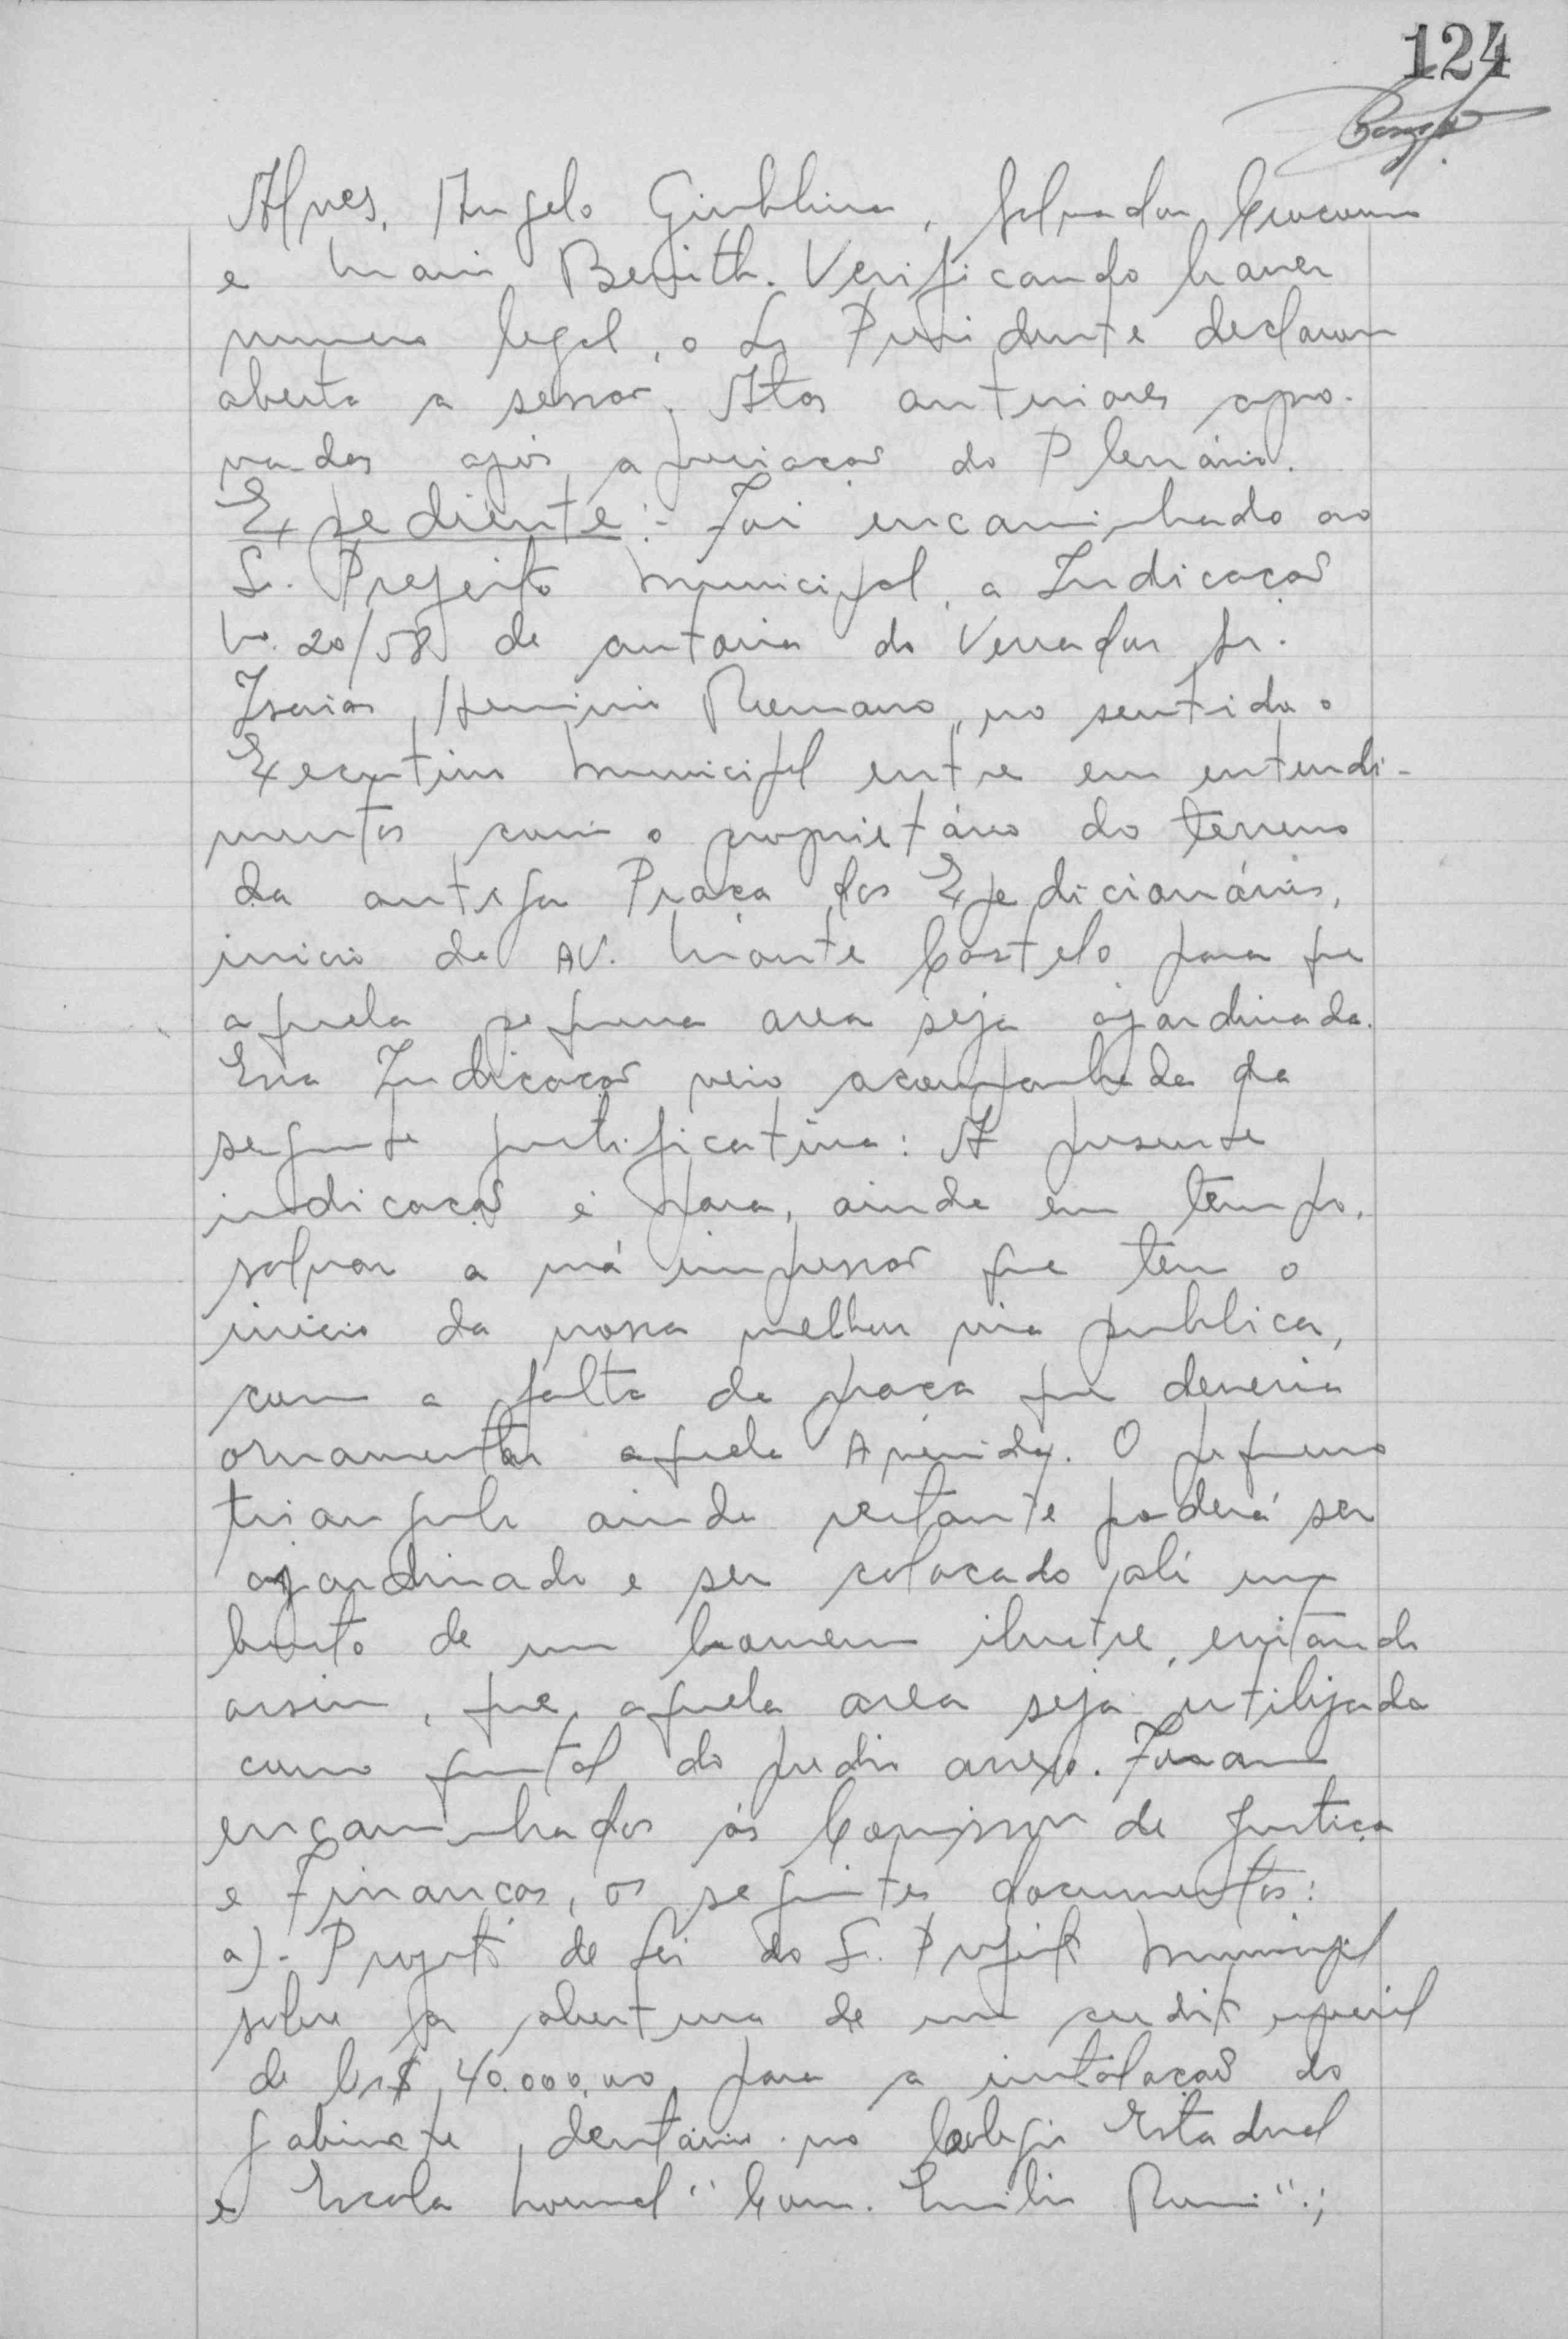 124
Alves, Angelo Giubbina, Salvador
e Mario Benith. Verificando haver
numero legal, o Sr Presidente declarou
aberta a sessão. Atas anteriores apro-
vadas após apreciação do Plenário.
Expediente:- Foi encaminhado ao
Sr. Prefeito Municipal, a Indicação
No. 20/58 de autoria do Vereador Sr.
Isaias Herminio Romano, no sentido o
Executivo Municipal entre em entendi-
mentos com o proprietário do terreno
da antiga Praça dos Expedicionários,
inicio da AV. Monte Castelo para que
aquela pequena area seja ajardinada.
Essa Indicação veio acompanhada da
seguinte justificativa: A presente
indicação é para, ainda em tempo,
salvar a má impressão que tem o
inicio da nossa melhor via publica,
com a falta da praça que deveria
ornamentar aquela Avenida. O pequeno
triangulo ainda restante poderá ser
ajardinado e ser colocado alí um
busto de um homem ilustre, evitando
assim, que, aquela area seja utilizada
como quintal do predio anexo. Foram
encaminhados ás Comissões de Justiça
e Finanças, os seguintes documentos:
a)- Projeto de lei do Sr. Prefeito Municipal
sobre a abertura de um credito especial
de Cr$ 40.000,00 para a instalação do
gabinete dentário no Colegio Estadual
e Escola Normal "Com. Emilio Romi".;